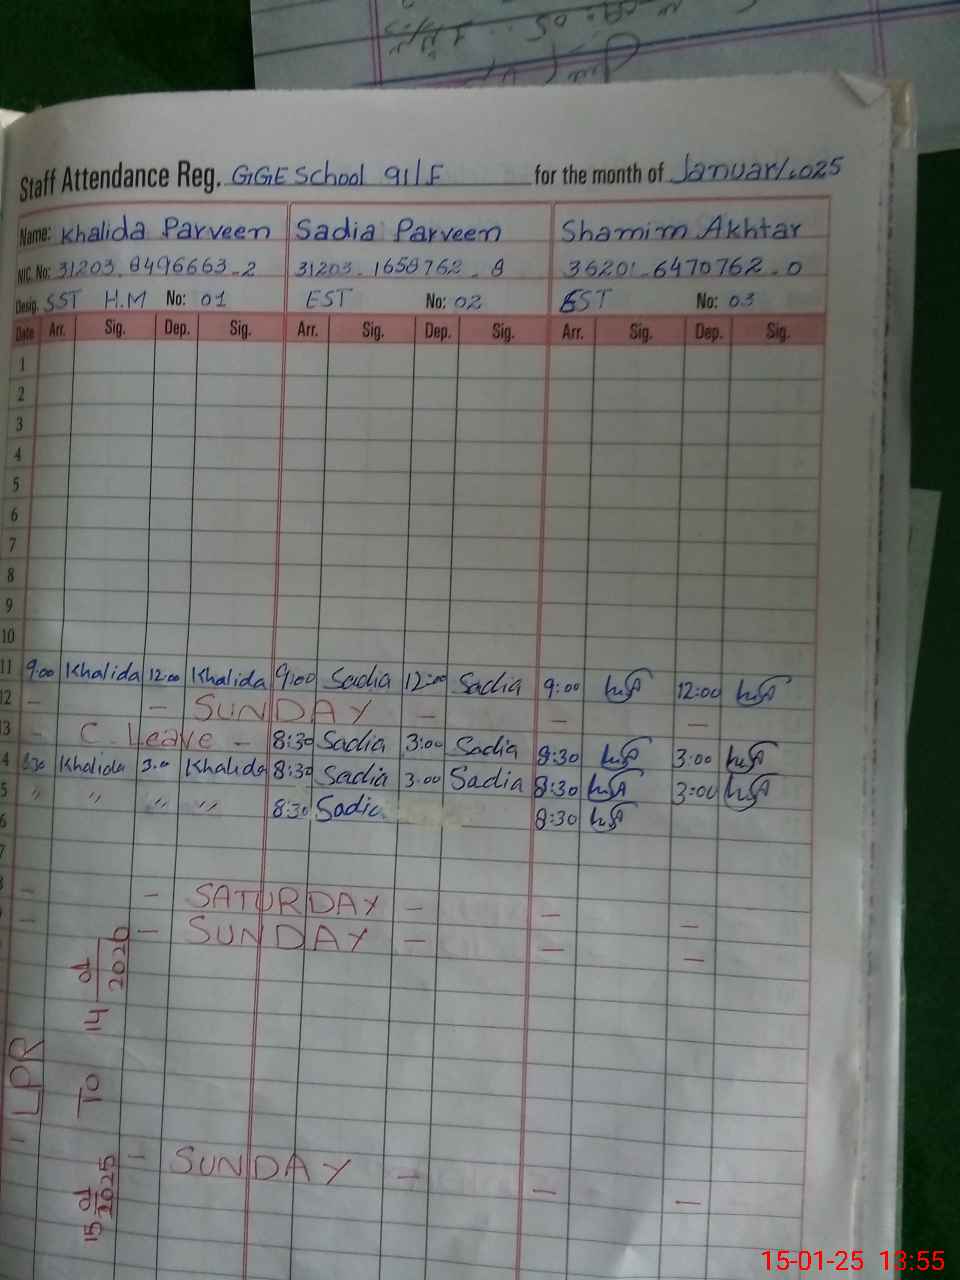 Staff Attendance Reg. GGE School 91/F for the month of January 2025
Name: Khalida Parveen Sadia Parveen Shamim Akhtar
NIC. No: 31203-8496663-2 31203-1658762-8 36201-6470762-0
Desig. SST H.M No: 01 EST No: 02 EST No: 03
Date Arr. Sig. Dep. Sig. Arr. Sig. Dep. Sig. Arr. Sig. Dep. Sig.
1
2
3
4
5
6
7
8
9
10
11 9:00 Khalida 12:00 Khalida 9:00 Sadia 12:00 Sadia 9:00 12:00
12 - - SUNDAY - - -
13 - C. Leave - 8:30 Sadia 3:00 Sadia 8:30 3:00
4 8:30 Khalida 3:00 Khalida 8:30 Sadia 3:00 Sadia 8:30 3:00
5 " " " " 8:30 Sadia 8:30
6
7
8 - - SATURDAY - - -
9 - - SUNDAY - - -
- SUNDAY - - -
- LPR
15 01 2025 To 14 01 2026
15-01-25 13:55